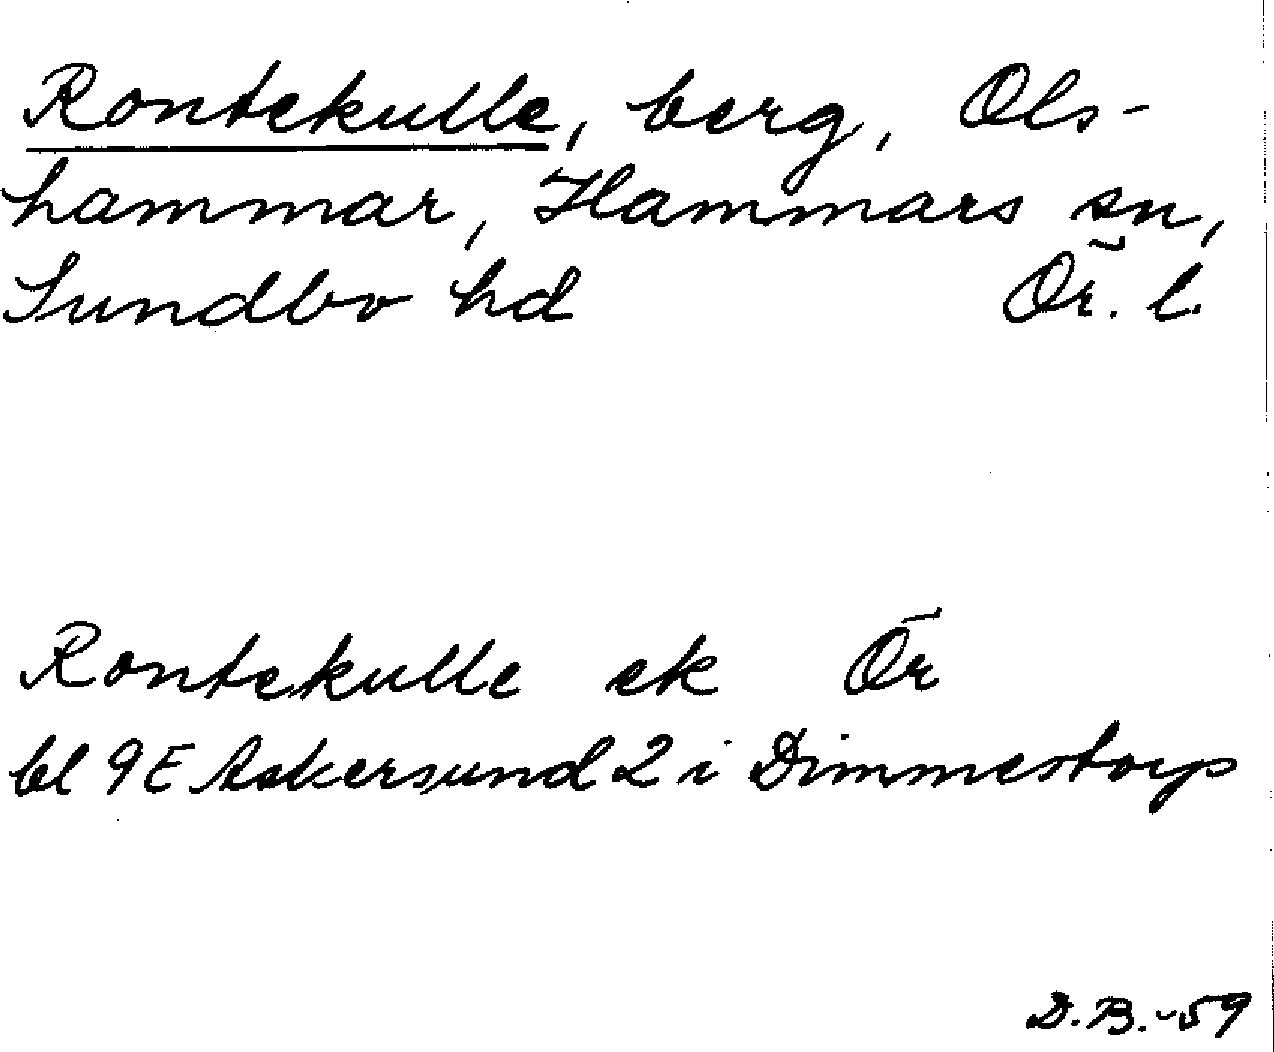 Rontekulle, berg, Ols-
hammar, Hammars sn,
Sundbo hd Ör. l.
Rontekulle ek Ör
bl 9E Askersund 2 i Dimmestorp
D.B.-59